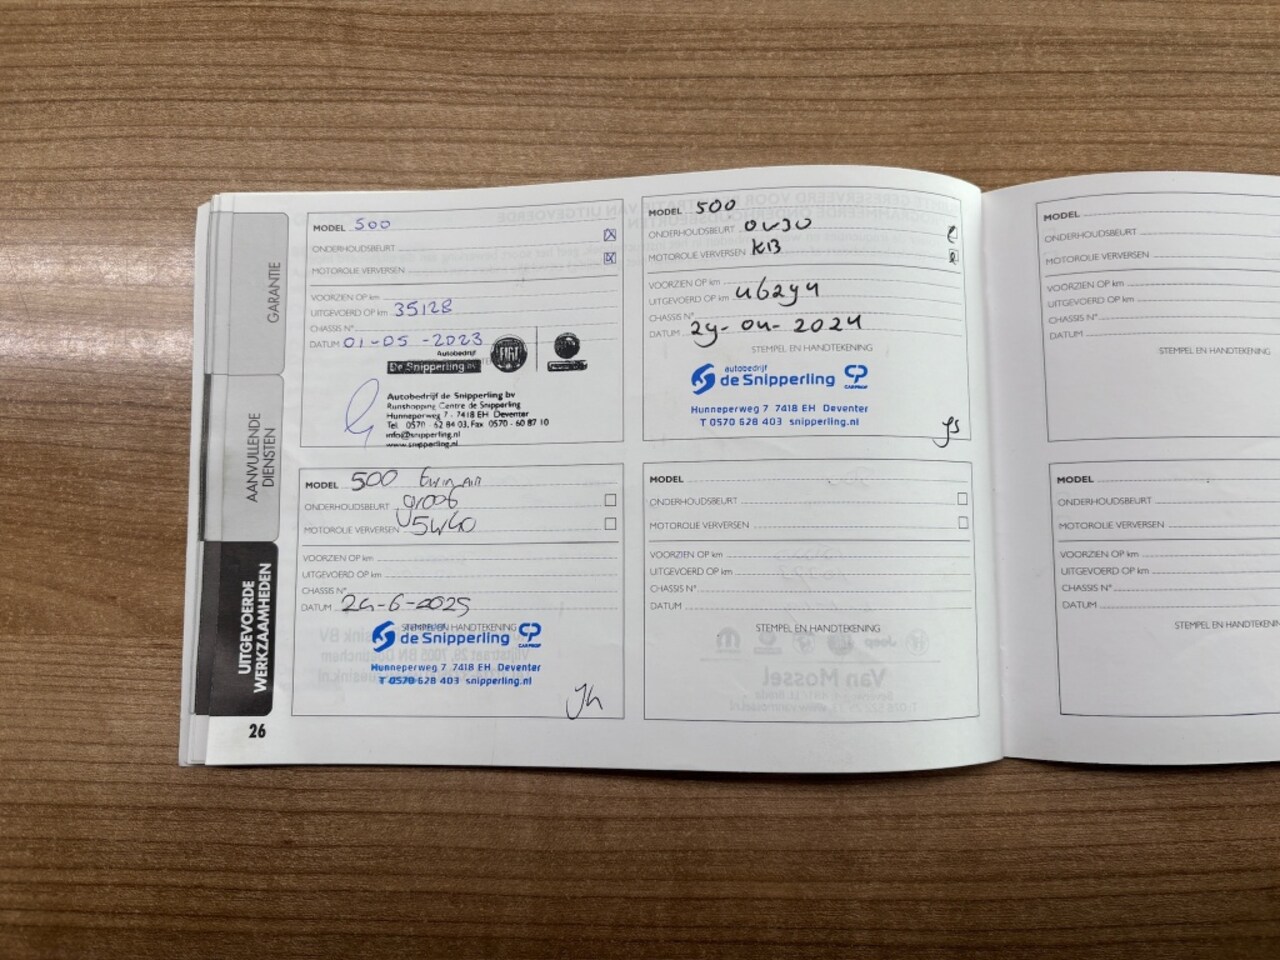 GARANTIE
AANVULLENDE
DIENSTEN
UITGEVOERDE
WERKZAAMHEDEN
MODEL 500
ONDERHOUDSBEURT
MOTOROLIE VERVERSEN
VOORZIEN OP km
UITGEVOERD OP km 35128
CHASSIS N°
DATUM 01-05-2023
Autobedrijf
De Snipperling bv
FIAT
Autobedrijf de Snipperling bv
Runshopping Centre de Snipperling
Hunneperweg 7 - 7418 EH Deventer
Tel. 0570 - 62 84 03, Fax 0570 - 60 87 10
info@snipperling.nl
www.snipperling.nl
MODEL 500
ONDERHOUDSBEURT 0W30
MOTOROLIE VERVERSEN KB
VOORZIEN OP km
UITGEVOERD OP km
CHASSIS N°
DATUM 29-04-2024
STEMPEL EN HANDTEKENING
autobedrijf
de Snipperling
CP
CARPROF
Hunneperweg 7 7418 EH Deventer
T 0570 628 403 snipperling.nl
MODEL 500
ONDERHOUDSBEURT
MOTOROLIE VERVERSEN 5W40
VOORZIEN OP km
UITGEVOERD OP km
CHASSIS N°
DATUM
STEMPEL EN HANDTEKENING
de Snipperling
CP
CARPROF
Hunneperweg 7 7418 EH Deventer
T 0570 628 403 snipperling.nl
MODEL
ONDERHOUDSBEURT
MOTOROLIE VERVERSEN
VOORZIEN OP km
UITGEVOERD OP km
CHASSIS N°
DATUM
STEMPEL EN HANDTEKENING
26
MODEL
ONDERHOUDSBEURT
MOTOROLIE VERVERSEN
VOORZIEN OP km
UITGEVOERD OP km
CHASSIS N°
DATUM
STEMPEL EN HANDTEKENING
MODEL
ONDERHOUDSBEURT
MOTOROLIE VERVERSEN
VOORZIEN OP km
UITGEVOERD OP km
CHASSIS N°
DATUM
STEMPEL EN